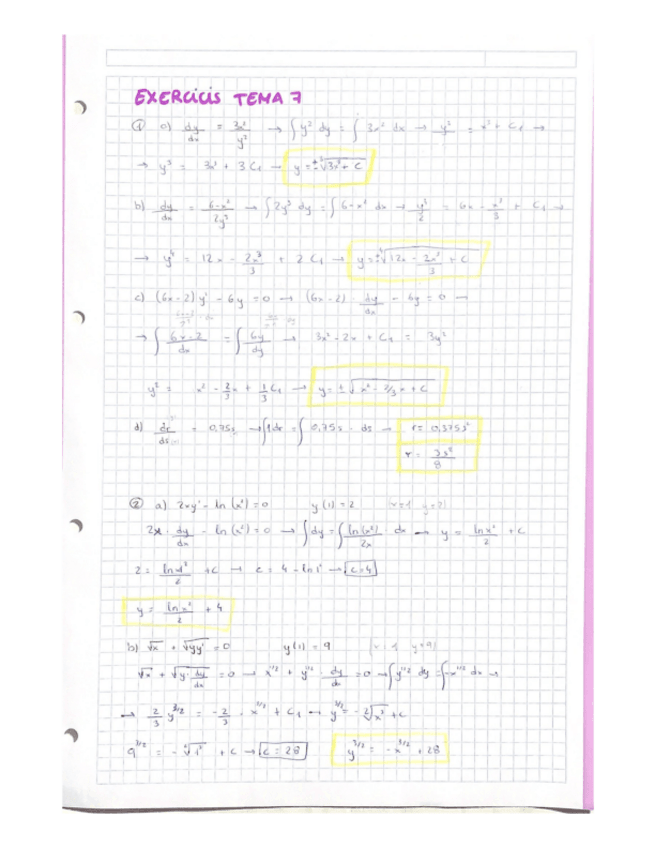 EXERCICIS TEMA 7
① a) dy/dx = 3x²/y² → ∫ y² dy = ∫ 3x² dx → y³/3 = x³ + C₁ →
→ y³ = 3x³ + 3C₁ → y = ±³√3x³ + C
b) dy/dx = 6-x²/2y³ → ∫ 2y³ dy = ∫ 6-x² dx → y⁴/2 = 6x - x³/3 + C₁ →
→ y⁴ = 12x - 2x³/3 + 2C₁ → y = ±⁴√12x - 2x³/3 + C
c) (6x-2) y' - 6y = 0 → (6x-2) dy/dx - 6y = 0 →
→ ∫ 6x-2/dx = ∫ 6y/dy → 3x² - 2x + C₁ = 3y²
y² = x² - 2/3 x + 1/3 C₁ → y = ± √x² - 2/3 x + C
d) dr/ds = 0,75s → ∫ 1 dr = ∫ 0,75s · ds → r = 0,375s²
r = 3s²/8
② a) 2xy' - ln (x²) = 0 y(1) = 2 (x=1 y=2)
2x · dy/dx - ln (x²) = 0 → ∫ dy = ∫ ln(x²)/2x dx → y = ln x²/2 + C
2 = ln 1²/2 + C → C = 4 - ln 1² → C = 4
y = ln x²/2 + 4
b) √x + √y y' = 0 y(1) = 9 (x=1 y=9)
√x + √y · dy/dx = 0 → x^1/2 + y^1/2 · dy/dx = 0 → ∫ y^1/2 dy = ∫ -x^1/2 dx →
→ 2/3 y^3/2 = -2/3 · x^3/2 + C₁ → y^3/2 = -²√x³ + C
9^3/2 = -√1³ + C → C = 28 y^3/2 = -x^3/2 + 28